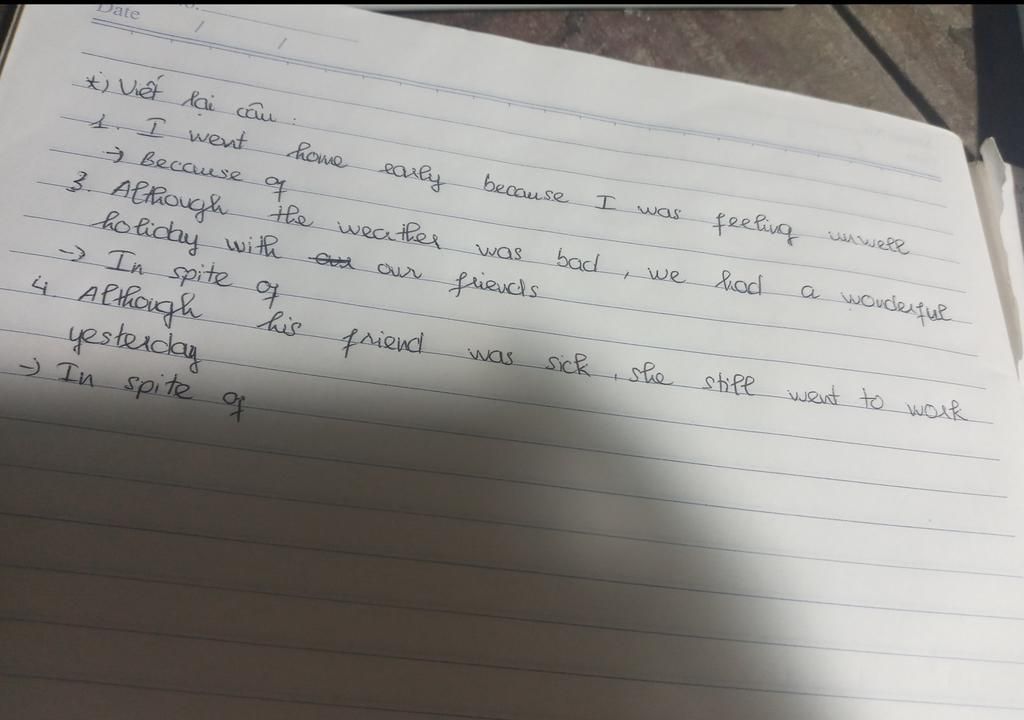 No.
Date / /
*) Viết lại câu :
1. I went home early because I was feeling unwell
→ Because of
3. Although the weather was bad, we had a wonderful
holiday with our friends
→ In spite of
4 Although his friend was sick, she still went to work
yesterday
→ In spite of